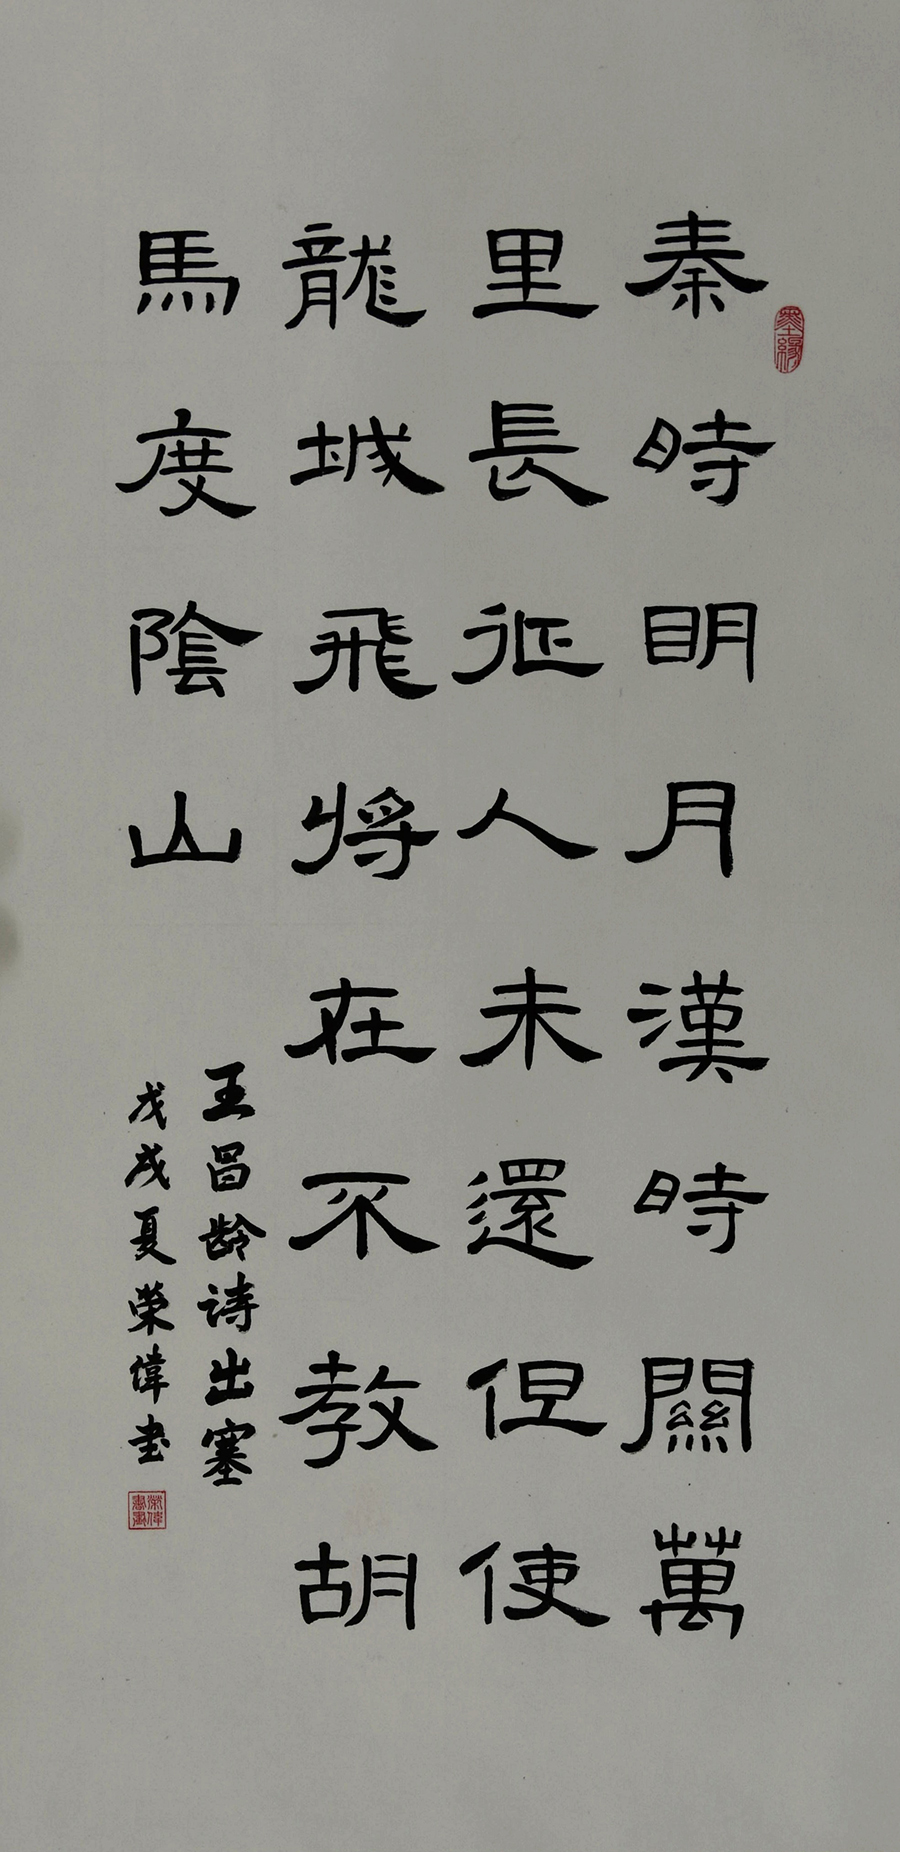 秦時明月漢時關萬
里長征人未還但使
龍城飛將在不教胡
馬度陰山
王昌龄诗出塞
戊戌夏榮偉书
墨緣